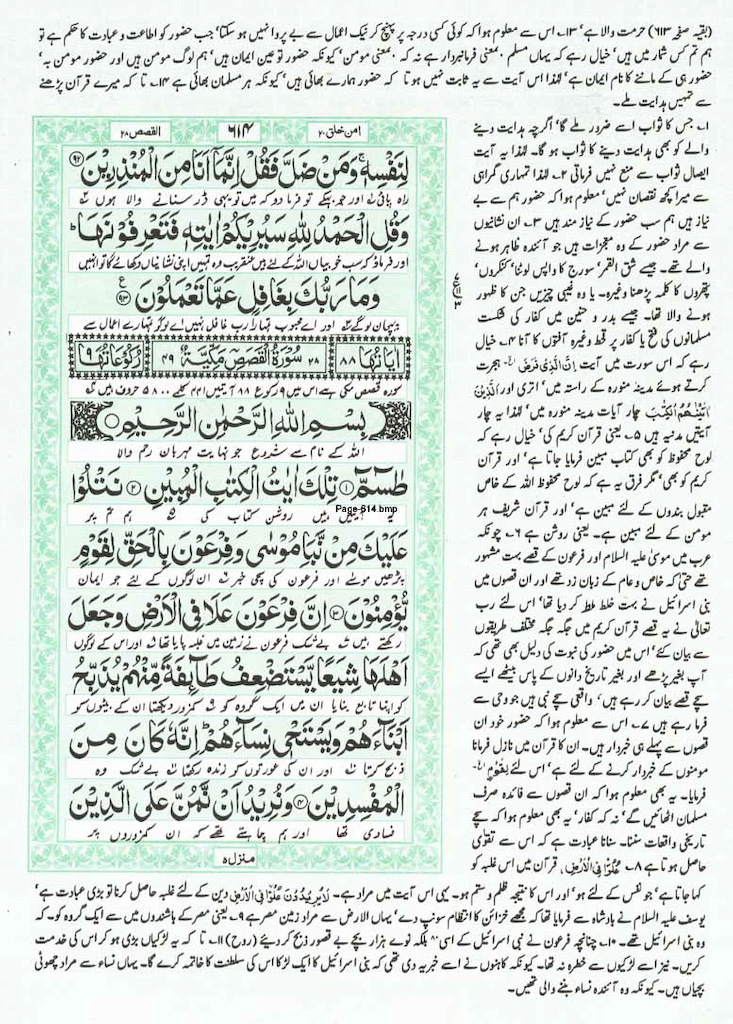 (بقیہ صفحہ ۶۱۳) حرمت والا ہے ۱۳۔ اس سے معلوم ہوا کہ کوئی کسی درجہ پر پہنچ کر نیک اعمال سے بے پروا نہیں ہو سکتا' جب حضور کو اطاعت و عبادت کا حکم ہے تو
ہم تم کس شمار میں ہیں' خیال رہے کہ یہاں مسلم . معنی فرمانبردار ہے نہ کہ . معنی مومن' کیونکہ حضور تو عین ایمان ہیں' ہم لوگ مومن ہیں اور حضور مومن بہ'
حضور ہی کے ماننے کا نام ایمان ہے' لہٰذا اس آیت سے یہ ثابت نہیں ہوتا کہ حضور ہمارے بھائی ہیں' کیونکہ ہر مسلمان بھائی ہے ۱۴۔ تا کہ میرے قرآن پڑھنے
سے تمہیں ہدایت ملے۔
امن خلق ۲۰
۶۱۴
القصص ۲۸
لِنَفْسِهٖ ۚ وَمَنْ ضَلَّ فَقُلْ اِنَّمَآ اَنَا مِنَ الْمُنْذِرِیْنَ ۹۲
راہ پائی اور جو بہکے تو فرما دو کہ میں تو یہی ڈر سنانے والا ہوں
وَقُلِ الْحَمْدُ لِلّٰهِ سَیُرِیْكُمْ اٰیٰتِهٖ فَتَعْرِفُوْنَهَا ؕ
اور فرماؤ کہ سب خوبیاں اللہ کے لئے ہیں عنقریب وہ تمہیں اپنی نشانیاں دکھائے گا تو انہیں
وَمَا رَبُّكَ بِغَافِلٍ عَمَّا تَعْمَلُوْنَ ۹۳
پہچان لو گے اور اے محبوب تمہارا رب غافل نہیں اے لوگو تمہارے اعمال سے
اٰیَاتُهَا ۸۸ ۲۸ سُوْرَةُ الْقَصَصِ مَكِّیَّةٌ ۴۹ رُكُوْعَاتُهَا ۹
سورہ قصص مکی ہے اس میں ۹ رکوع ۸۸ آیتیں ۴۴۱ کلمے ۵۸۰۰ حروف ہیں
بِسْمِ اللّٰهِ الرَّحْمٰنِ الرَّحِیْمِ
اللہ کے نام سے شروع جو نہایت مہربان رحم والا
طٰسٓمّٓ ۱ تِلْكَ اٰیٰتُ الْكِتٰبِ الْمُبِیْنِ ۲ نَتْلُوْا
یہ آیتیں ہیں روشن کتاب کی ہم تم پر
Page-614.bmp
عَلَیْكَ مِنْ نَّبَاِ مُوْسٰی وَفِرْعَوْنَ بِالْحَقِّ لِقَوْمٍ
پڑھیں موسٰے اور فرعون کی سچی خبر ان لوگوں کے لئے جو ایمان
یُّؤْمِنُوْنَ ۳ اِنَّ فِرْعَوْنَ عَلَا فِی الْاَرْضِ وَجَعَلَ
رکھتے ہیں بے شک فرعون نے زمین میں غلبہ پایا تھا اور اس کے لوگوں
اَهْلَهَا شِیَعًا یَّسْتَضْعِفُ طَآئِفَةً مِّنْهُمْ یُذَبِّحُ
کو اپنا تابع بنایا ان میں ایک گروہ کو کمزور دیکھتا ان کے بیٹوں کو
اَبْنَآءَهُمْ وَیَسْتَحْیٖ نِسَآءَهُمْ ؕ اِنَّهٗ كَانَ مِنَ
ذبح کرتا اور ان کی عورتوں کو زندہ رکھتا بے شک وہ
الْمُفْسِدِیْنَ ۴ وَنُرِیْدُ اَنْ نَّمُنَّ عَلَی الَّذِیْنَ
فسادی تھا اور ہم چاہتے تھے کہ ان کمزوروں پر
منزل ۵
۱۔ جس کا ثواب اسے ضرور ملے گا' اگرچہ ہدایت دینے
والے کو بھی ہدایت دینے کا ثواب ہو گا۔ لہٰذا یہ آیت
ایصال ثواب سے منع نہیں فرماتی ۲۔ لہٰذا تمہاری گمراہی
سے میرا کچھ نقصان نہیں' معلوم ہوا کہ حضور ہم سے بے
نیاز ہیں ہم سب حضور کے نیاز مند ہیں ۳۔ ان نشانیوں
سے مراد حضور کے وہ معجزات ہیں جو آئندہ ظاہر ہونے
والے تھے۔ جیسے شق القمر' سورج کا واپس لوٹنا' کنکروں'
پتھروں کا کلمہ پڑھنا وغیرہ۔ یا وہ غیبی چیزیں جن کا ظہور
ہونے والا تھا۔ جیسے بدر و حنین میں کفار کی شکست
مسلمانوں کی فتح یا کفار پر قحط وغیرہ آفتوں کا آنا ۴۔ خیال
رہے کہ اس سورت میں آیت اِنَّ الَّذِیْ فَرَضَ الخ ہجرت
کرتے ہوئے مدینہ منورہ کے راستہ میں' اتری اور اَلَّذِیْنَ
اٰتَیْنٰهُمُ الْكِتٰبَ چار آیات مدینہ منورہ میں' لہٰذا یہ چار
آیتیں مدنیہ ہیں ۵۔ یعنی قرآن کریم کی' خیال رہے کہ
لوح محفوظ کو بھی کتاب مبین فرمایا جاتا ہے' اور قرآن
کریم کو بھی' مگر فرق یہ ہے کہ لوح محفوظ اللہ کے خاص
مقبول بندوں کے لئے مبین ہے' اور قرآن شریف ہر
مومن کے لئے مبین ہے۔ یعنی روشن ہے ۶۔ چونکہ
عرب میں موسیٰ علیہ السلام اور فرعون کے قصے بہت مشہور
تھے حتیٰ کہ خاص و عام کے زبان زد تھے اور ان قصوں میں
بنی اسرائیل نے بہت خلط ملط کر دیا تھا' اس لئے رب
تعالٰی نے یہ قصے قرآن کریم میں جگہ جگہ مختلف طریقوں
سے بیان کئے' اس میں حضور کی نبوت کی دلیل بھی تھی کہ
آپ بغیر پڑھے اور بغیر تاریخ دانوں کے پاس بیٹھے ایسے
سچے قصے بیان کر رہے ہیں' واقعی سچے نبی ہیں جو وحی سے
فرما رہے ہیں ۷۔ اس سے معلوم ہوا کہ حضور خود ان
قصوں سے پہلے ہی خبردار ہیں۔ ان کا قرآن میں نازل فرمانا
مومنوں کے خبردار کرنے کے لئے ہے' اس لئے لِقَوْمٍ الخ
فرمایا۔ یہ بھی معلوم ہوا کہ ان قصوں سے فائدہ صرف
مسلمان اٹھائیں گے' نہ کہ کفار' یہ بھی معلوم ہوا کہ سچے
تاریخی واقعات سننا۔ سنانا عبادت ہے کہ اس سے تقوٰی
حاصل ہوتا ہے ۸۔ عُلُوًّا فِی الْاَرْضِ، قرآن میں اس غلبہ کو
کہا جاتا ہے' جو نفس کے لئے ہو' اور اس کا نتیجہ ظلم و ستم ہو۔ یہی اس آیت میں مراد ہے۔ لَا یُرِیْدُوْنَ عُلُوًّا فِی الْاَرْضِ دین کے لئے غلبہ حاصل کرنا تو بڑی عبادت ہے'
یوسف علیہ السلام نے بادشاہ سے فرمایا تھا کہ مجھے خزائن کا انتظام سونپ دے' یہاں الارض سے مراد زمین مصر ہے ۹۔ یعنی مصر کے باشندوں میں سے ایک گروہ کو۔ کہ
وہ بنی اسرائیل تھے۔ ۱۰۔ چنانچہ فرعون نے بنی اسرائیل کے اسی ۸۰ بلکہ نوے ہزار بچے بے قصور ذبح کر دیئے (روح) ۱۱۔ تا کہ یہ لڑکیاں بڑی ہو کر اس کی خدمت
کریں۔ نیز اسے لڑکیوں سے خطرہ نہ تھا۔ کیونکہ کاہنوں نے اسے خبر یہ دی تھی کہ بنی اسرائیل کا ایک لڑکا اس کی سلطنت کا خاتمہ کرے گا۔ یہاں نساء سے مراد چھوٹی
بچیاں ہیں۔ کیونکہ وہ آئندہ نساء بننے والی تھیں۔